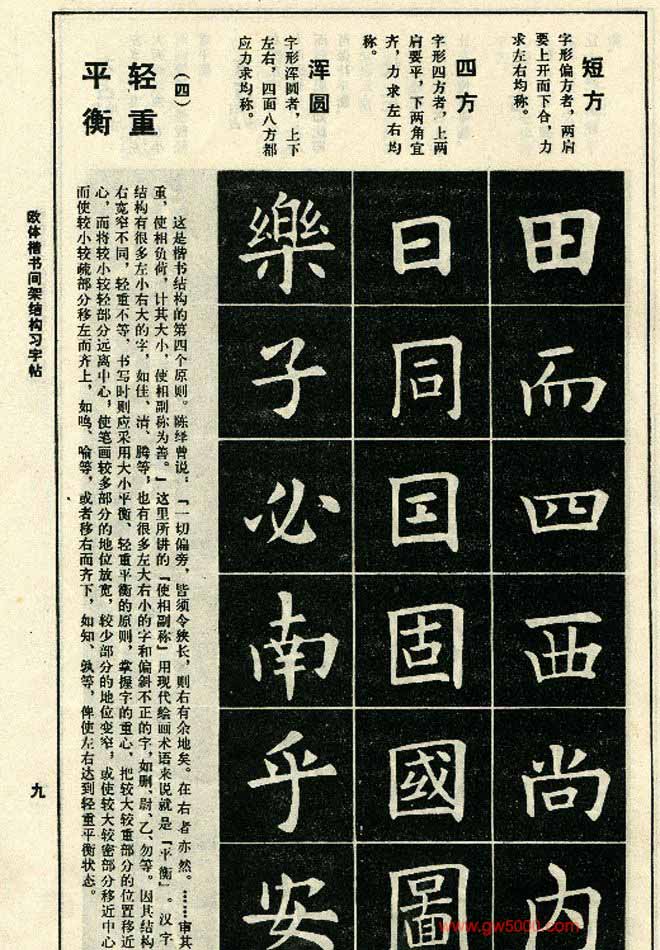 短方
字形偏方者，两肩
要上开而下合，力
求左右均称。
田而四西尚内
四方
字形四方者，上两
肩要平，下两角宜
齐，力求左右均
称。
日同囯固國圖
浑圆
字形浑圆者，上下
左右，四面八方都
应力求均称。
樂子必南乎安
（四）
轻重
平衡
这是楷书结构的第四个原则。陈绎曾说：『一切偏旁，皆须令狭长，则右有余地矣。在右者亦然。……审其
重，使相负荷，计其大小，使相副称为善。』这里所讲的『使相副称』用现代绘画术语来说就是『平衡』。汉字
结构有很多左小右大的字，如佳、清、腾等；也有很多左大右小的字和偏斜不正的字，如删、尉、乙、勿等。因其结构
右宽窄不同，轻重不等，书写时则应采用大小平衡、轻重平衡的原则，掌握字的重心，把较大较重部分的位置移近
心，而将较小较轻部分远离中心，使笔画较多部分的地位放宽，较少部分的地位变窄，或使较大较密部分移近中心
而使较小较疏部分移左而齐上，如呜、喻等，或者移右而齐下，如知、孰等，俾使左右达到轻重平衡状态。
欧体楷书间架结构习字帖
九
www.gw5000.com